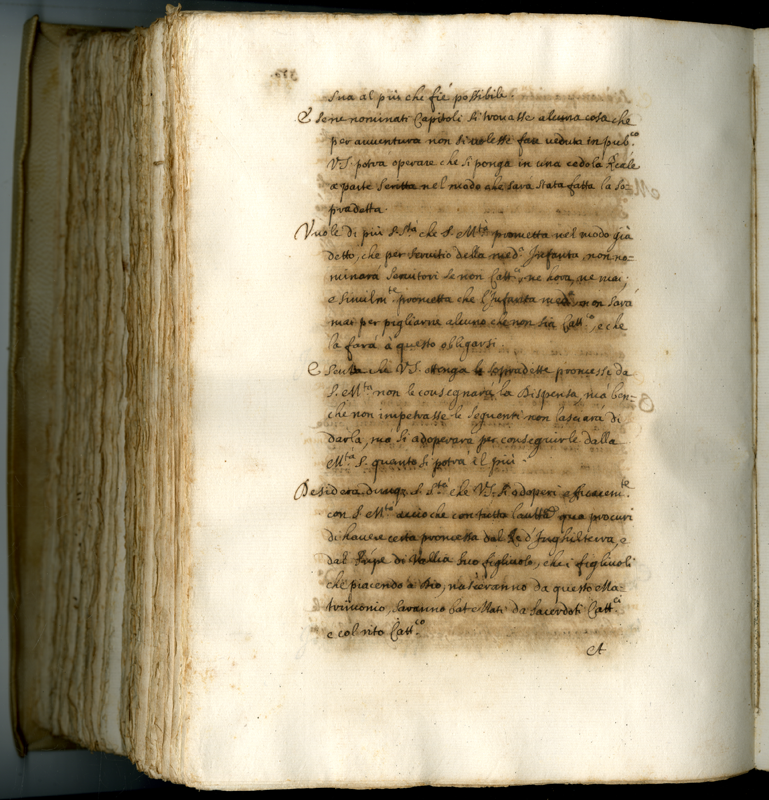 sua al più che fie possibile.
E se ne nominati Capitoli si trovasse alcuna cosa che
per avventura non si volesse far veduta in pub.co
V.S. potrà operare che si ponga in una cedola Reale
a parte scritta nel modo che sara stata fatta la so=
pradetta.
Vuole di più S. Stà che S. M.tà prometta nel modo già
detto, che per servitio della med.a Infanta non no=
minarà servitori se non Catt.ci, ne hora, ne mai;
e similm.te prometta che l'Infanta med.a non sarà
mai per pigliarne alcuno che non sia Catt.co, e che
la farà à questo obligarsi.
E senza che V.S. ottenga le sopradette promesse da
S. M.tà non le consegnarà la Dispensa, mà ben=
che non impetrasse le seguenti non lasciarà di
darla, mà si adoperarà per conseguirle dalla
M.tà S. quanto si potrà il più.
Desidera dunq. S. S.tà che V.S. si adoperi efficacem.te
con S. M.tà acciò che con tutta l'autt.à sua procuri
di havere certa promessa dal Re d'Inghilterra, e
dal Prípe di Vallia suo figliuolo, che i figliuoli
che piacendo à Dio, nasceranno da questo Ma=
trimonio, saranno battezzati da sacerdoti Catt.ci
e col rito Catt.co
A